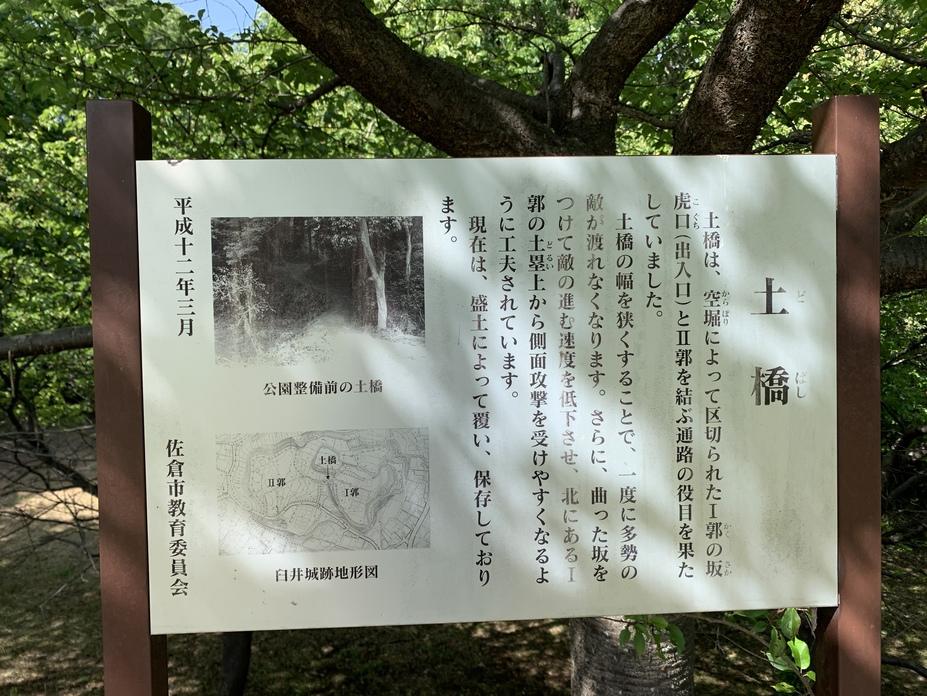 土橋
どばし
土橋は、空堀によって区切られたⅠ郭の坂
からぼり
かく
さか
虎口(出入口)とⅡ郭を結ぶ通路の役目を果た
こぐち
していました。
土橋の幅を狭くすることで、一度に多勢の
敵が渡れなくなります。さらに、曲った坂を
つけて敵の進む速度を低下させ、北にあるⅠ
郭の土塁上から側面攻撃を受けやすくなるよ
どるい
うに工夫されています。
現在は、盛土によって覆い、保存しており
ます。
公園整備前の土橋
土橋
Ⅱ郭
Ⅰ郭
臼井城跡地形図
平成十二年三月
佐倉市教育委員会